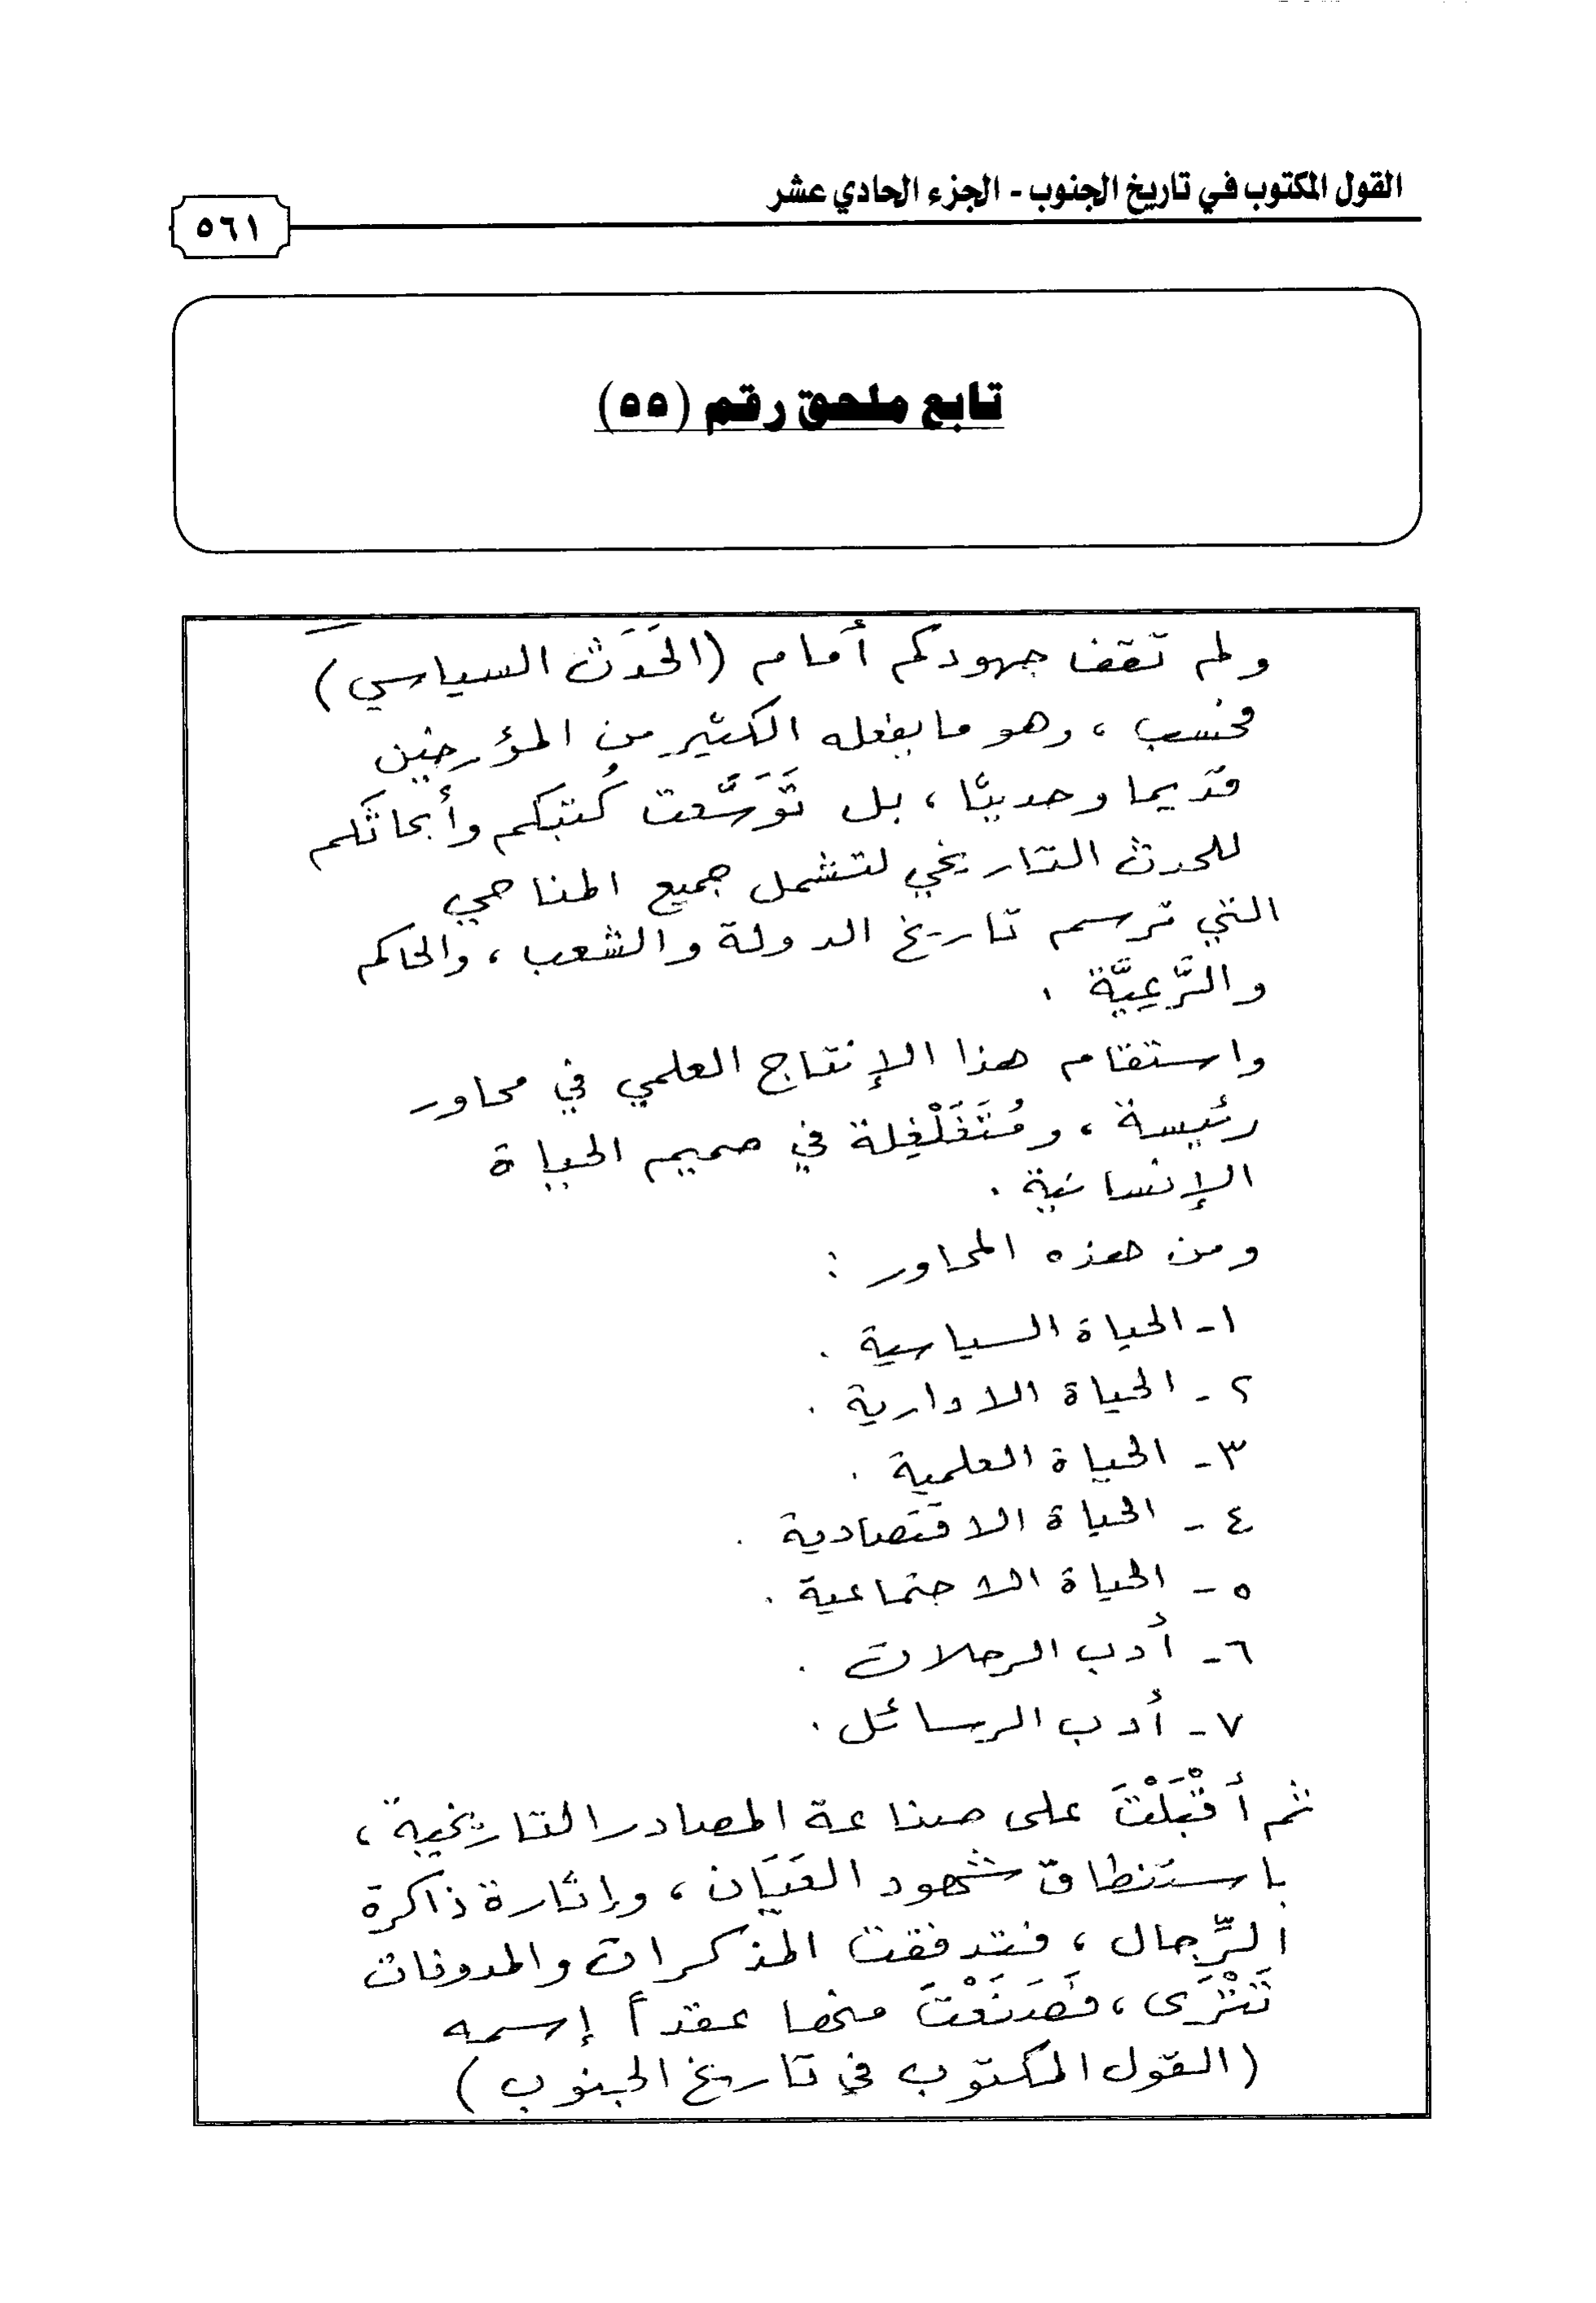 القول المكتوب في تاريخ الجنوب - الجزء الحادي عشر
٥٦١
تابع ملحق رقم (٥٥)
ولم تقف جهودكم أمام (الحَدَث السياسي)
فحسب ، وهو ما يفعله الكثير من المؤرخين
قديما وحديثًا ، بل تَوَسَّعت كُتبكم وأبحاثكم
للحدث التاريخي لتشمل جميع المناحي
التي ترسم تاريخ الدولة والشعب ، والحاكم
والرَّعِيَّة .
واستقام هذا الإنتاج العلمي في محاور
رئيسة ، ومُتَغَلْغِلة في صميم الحياة
الإنسانية .
ومن هذه المحاور :
١- الحياة السياسية .
٢ - الحياة الادارية .
٣ - الحياة العلمية .
٤ - الحياة الاقتصادية .
٥ - الحياة الاجتماعية .
٦ - أدب الرحلات .
٧ - أدب الرسائل .
ثم أقْبَلْتَ على صناعة المصادر التاريخية ،
باستنطاق شهود العَيَان ، وإثارة ذاكرة
الرِّجال ، فتدفقت المذكرات والمدونات
تَتْرَى ، فَصَنَعْتَ منها عقداً إسمه
(القول المكتوب في تاريخ الجنوب)